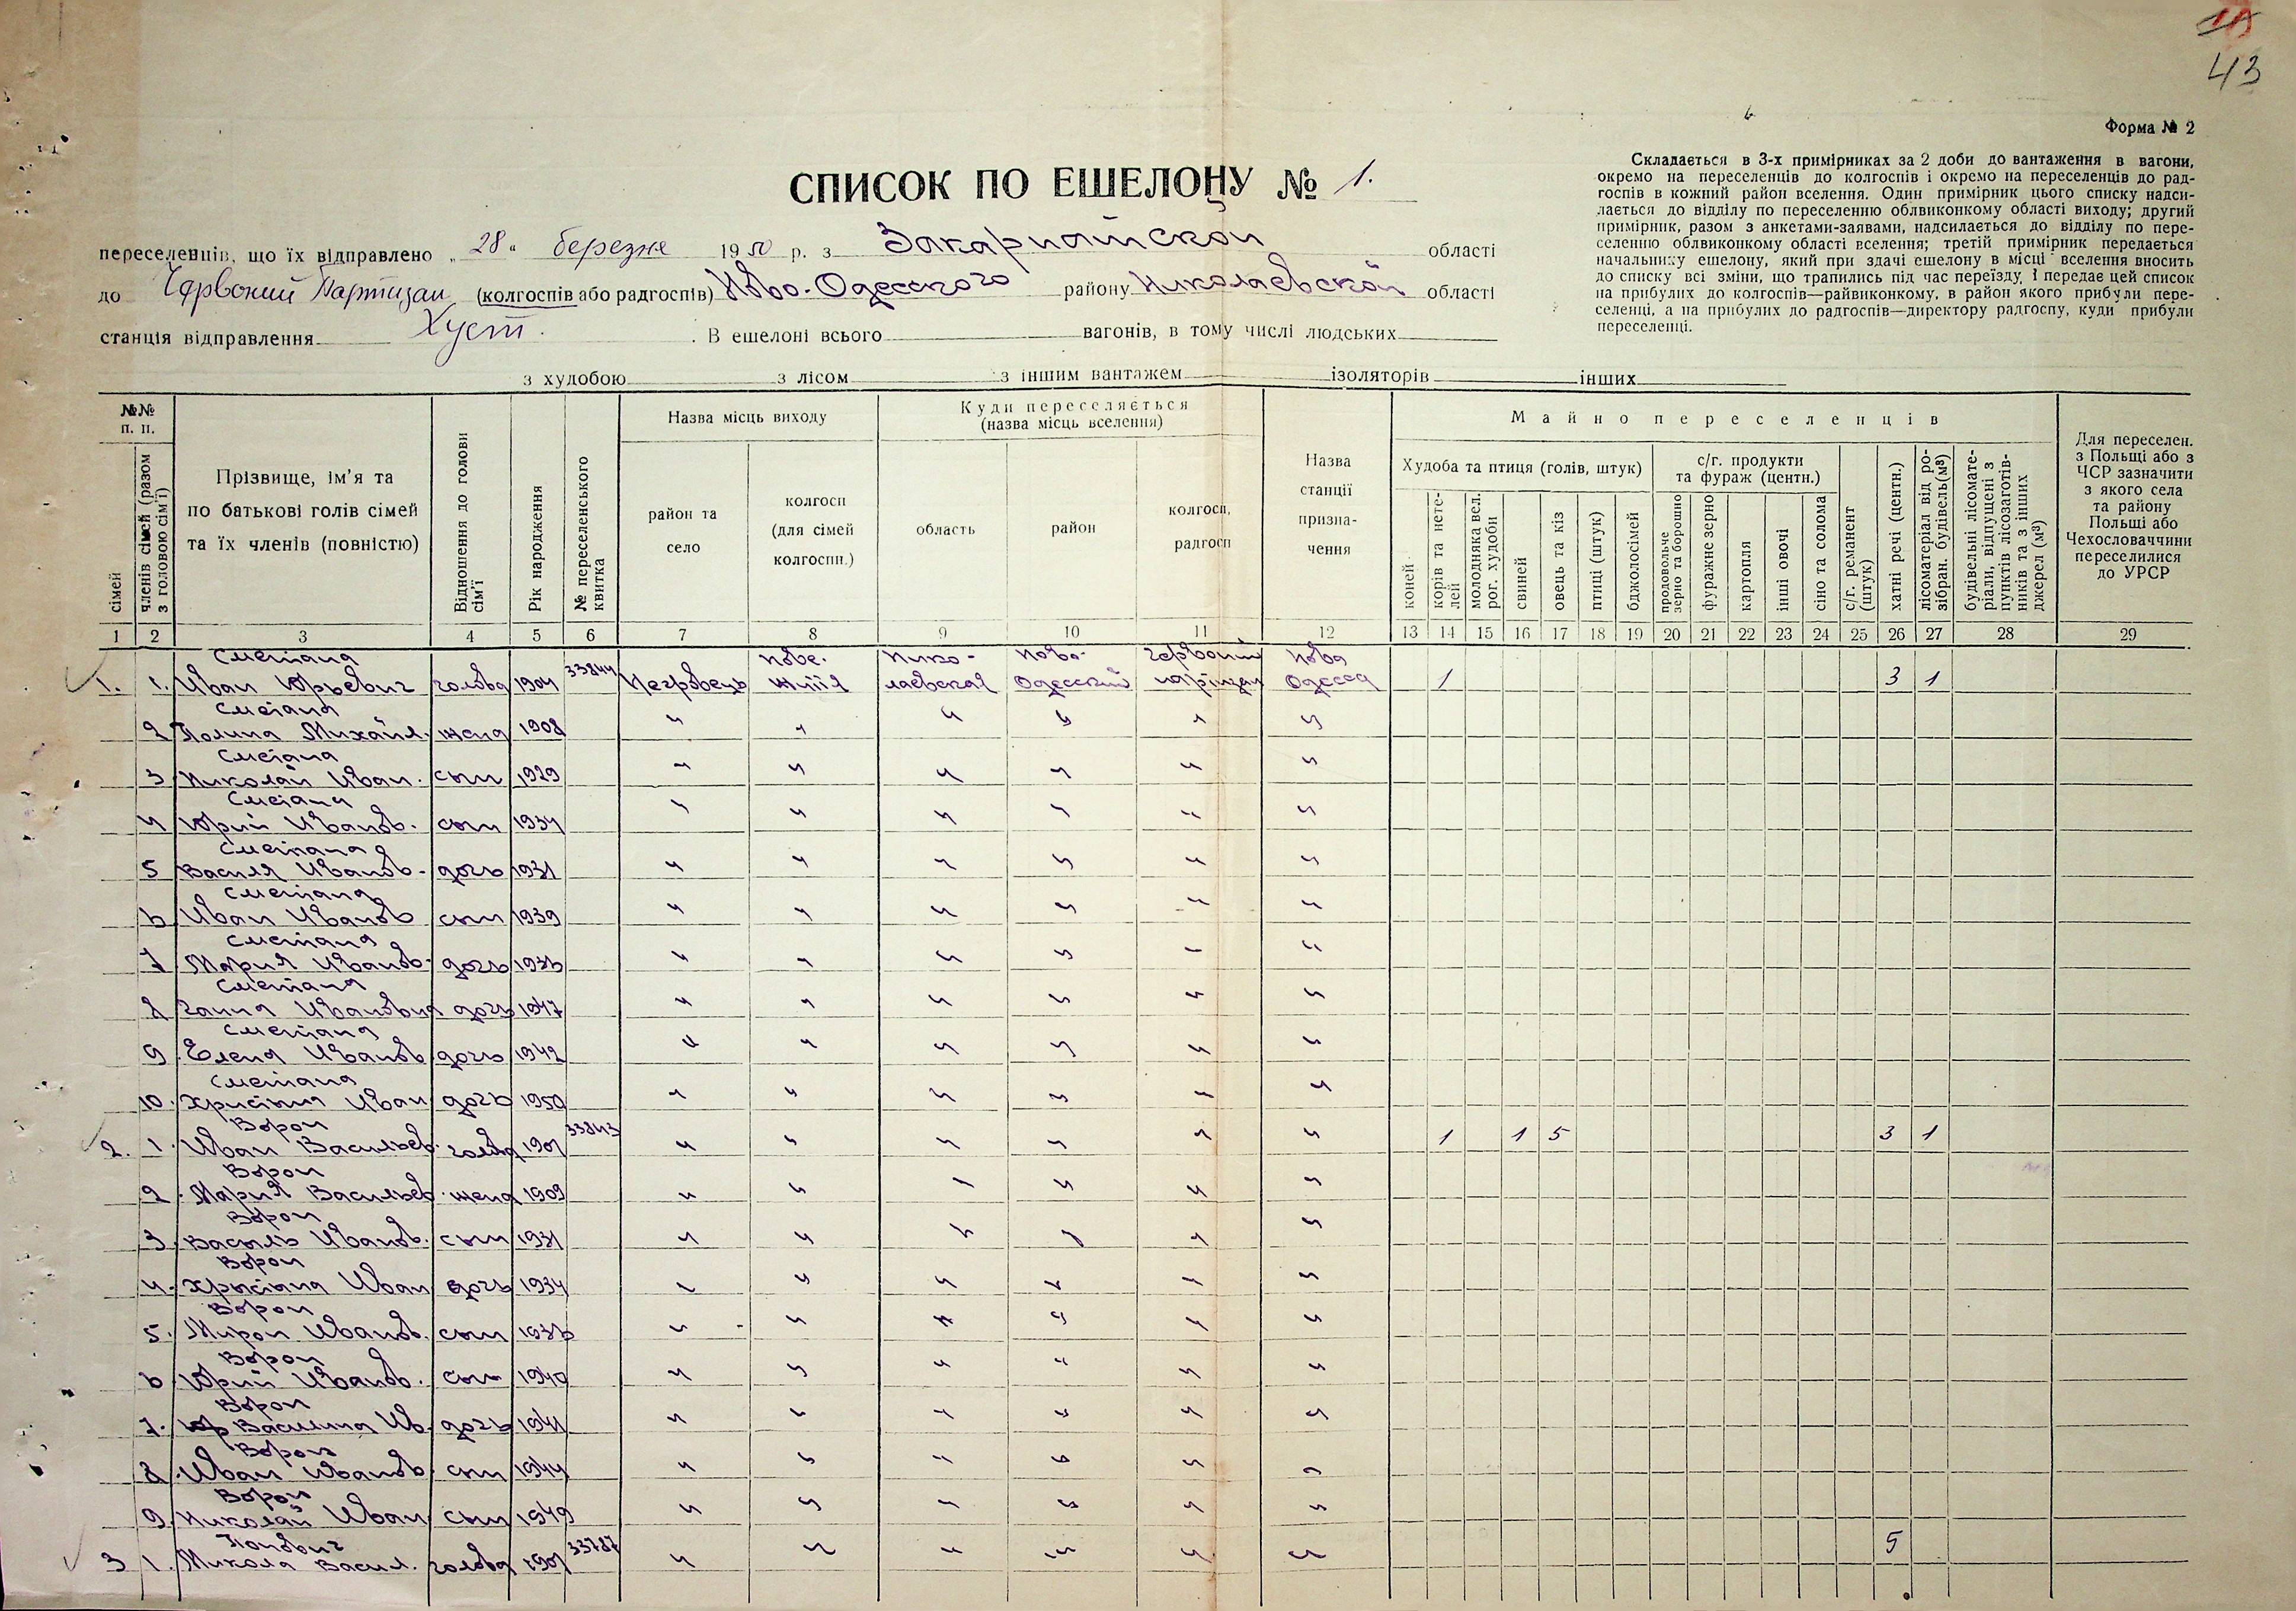 43
Форма № 2
СПИСОК ПО ЕШЕЛОНУ № 1.
Складається в 3-х примірниках за 2 доби до вантаження в вагони,
окремо на переселенців до колгоспів і окремо на переселенців до рад-
госпів в кожний район вселення. Один примірник цього списку надси-
лається до відділу по переселенню облвиконкому області виходу; другий
примірник, разом з анкетами-заявами, надсилається до відділу по пере-
селенню облвиконкому області вселення; третій примірник передається
начальнику ешелону, який при здачі ешелону в місці вселення вносить
до списку всі зміни, що трапились під час переїзду, і передає цей список
на прибулих до колгоспів—райвиконкому, в район якого прибули пере-
селенці, а на прибулих до радгоспів—директору радгоспу, куди прибули
переселенці.
переселенців, що їх відправлено „28“ березне 1950 р. з Закарпатской області
до Червоний Партизан (колгоспів або радгоспів) Ново-Одесского району Николаевской області
станція відправлення Хуст. В ешелоні всього вагонів, в тому числі людських
з худобою з лісом з іншим вантажем ізоляторів інших
№№ п. п.
сімей
членів сімей (разом з головою сім'ї)
Прізвище, ім'я та
по батькові голів сімей
та їх членів (повністю)
Відношення до голови сім'ї
Рік народження
№ переселенського квитка
Назва місць виходу
район та село
колгосп (для сімей колгоспн.)
Куди переселяється
(назва місць вселення)
область
район
колгосп, радгосп
Назва станції призна-чення
Майно переселенців
Худоба та птиця (голів, штук)
коней
корів та нете-лей
молодняка вел. рог. худоби
свиней
овець та кіз
птиці (штук)
бджолосімей
с/г. продукти та фураж (центн.)
продовольче зерно та борошно
фуражне зерно
картопля
інші овочі
сіно та солома
с/г. реманент (штук)
хатні речі (центн.)
лісоматеріал від ро-зібран. будівель (м³)
будівельні лісомате-ріали, відпущені з пунктів лісозаготів-ників та з інших джерел (м³)
Для переселен.
з Польщі або з
ЧСР зазначити
з якого села
та району
Польщі або
Чехословаччини
переселилися
до УРСР
1 2 3 4 5 6 7 8 9 10 11 12 13 14 15 16 17 18 19 20 21 22 23 24 25 26 27 28 29
1. 1. Сметана Иван Юрьевич голова 1904 33844 Негровець Нико-лаевская Ново-Одесский Червоний партизан Нова Одесса 1 3 1
2 Сметана Полина Михайл. жена 1908 " " " " " "
3 Сметана Николай Иван. сын 1929 " " " " " "
4 Сметана Юрий Иванов. сын 1934 " " " " " "
5 Сметана Василя Иванов. дочь 1931 " " " " " "
6 Сметана Иван Иванов сын 1939 " " " " " "
7 Сметана Мария Иванов. дочь 1936 " " " " " "
8 Сметана Ганна Ивановна дочь 1947 " " " " " "
9 Сметана Елена Иванов. дочь 1942 " " " " " "
10. Сметана Христина Иван дочь 1950 " " " " " "
2. 1. Ворон Иван Васильев. голова 1901 33843 " " " " " " 1 1 5 3 1
2. Ворон Мария Васильев. жена 1909 " " " " " "
3. Ворон Василь Иванов. сын 1931 " " " " " "
4. Ворон Христина Иван дочь 1934 " " " " " "
5. Ворон Мирон Иванов. сын 1936 " " " " " "
6 Ворон Юрий Иванов. сын 1940 " " " " " "
7. Ворон Василина Ив. дочь 1941 " " " " " "
8. Ворон Иван Иванов. сын 1944 " " " " " "
9. Ворон Николай Иван сын 1949 " " " " " "
3 1. Попович Микола Васил. голова 1901 33787 " " " " " " 5